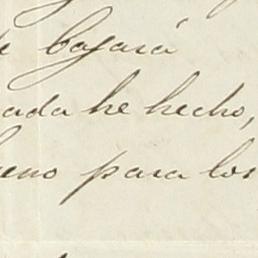 bajará
ada he hecho,
eno para los